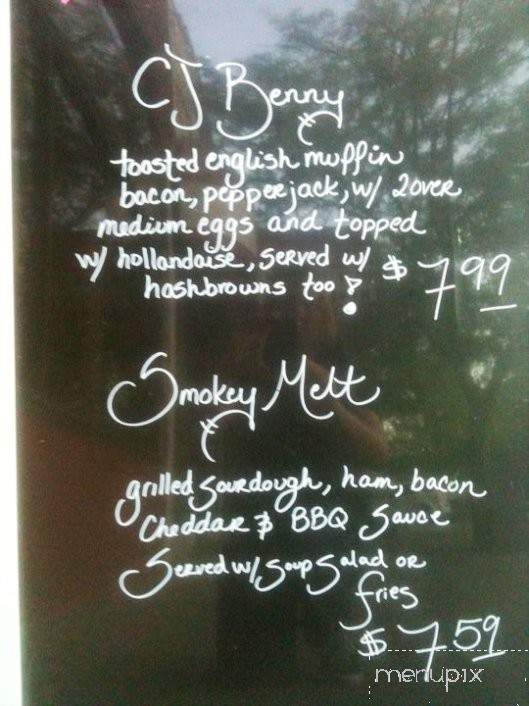 CJ Benny
toasted english muffin
bacon, pepperjack, w/ 2 over
medium eggs and topped
w/ hollandaise, served w/ $ 7.99
hashbrowns too!
Smokey Melt
grilled sourdough, ham, bacon
Cheddar & BBQ Sauce
Served w/ Soup Salad or
fries
$ 7.59
menupix